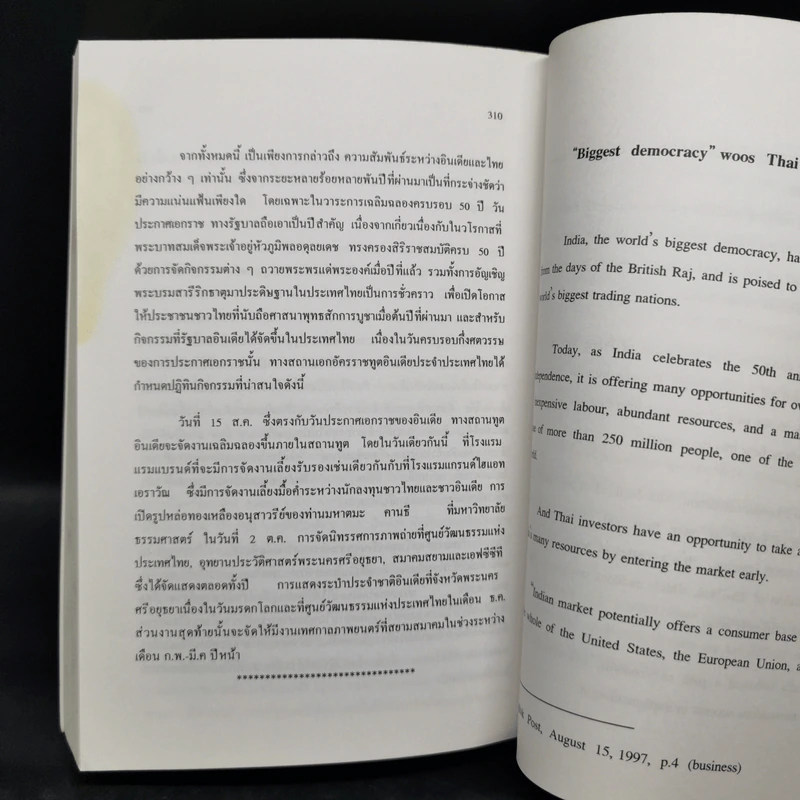 310
จากทั้งหมดนี้ เป็นเพียงการกล่าวถึง ความสัมพันธ์ระหว่างอินเดียและไทย
อย่างกว้าง ๆ เท่านั้น ซึ่งจากระยะหลายร้อยหลายพันปีที่ผ่านมาเป็นที่กระจ่างชัดว่า
มีความแน่นแฟ้นเพียงใด โดยเฉพาะในวาระการเฉลิมฉลองครบรอบ 50 ปี วัน
ประกาศเอกราช ทางรัฐบาลถือเอาเป็นปีสำคัญ เนื่องจากเกี่ยวเนื่องกับในวโรกาสที่
พระบาทสมเด็จพระเจ้าอยู่หัวภูมิพลอดุลยเดช ทรงครองสิริราชสมบัติครบ 50 ปี
ด้วยการจัดกิจกรรมต่าง ๆ ถวายพระพรแด่พระองค์เมื่อปีที่แล้ว รวมทั้งการอัญเชิญ
พระบรมสารีริกธาตุมาประดิษฐานในประเทศไทยเป็นการชั่วคราว เพื่อเปิดโอกาส
ให้ประชาชนชาวไทยที่นับถือศาสนาพุทธสักการบูชาเมื่อต้นปีที่ผ่านมา และสำหรับ
กิจกรรมที่รัฐบาลอินเดียได้จัดขึ้นในประเทศไทย เนื่องในวันครบรอบกึ่งศตวรรษ
ของการประกาศเอกราชนั้น ทางสถานเอกอัครราชทูตอินเดียประจำประเทศไทยได้
กำหนดปฏิทินกิจกรรมที่น่าสนใจดังนี้
วันที่ 15 ส.ค. ซึ่งตรงกับวันประกาศเอกราชของอินเดีย ทางสถานทูต
อินเดียจะจัดงานเฉลิมฉลองขึ้นภายในสถานทูต โดยในวันเดียวกันนี้ ที่โรงแรม
แรมแบรนด์ที่จะมีการจัดงานเลี้ยงรับรองเช่นเดียวกันกับที่โรงแรมแกรนด์ไฮแอท
เอราวัณ ซึ่งมีการจัดงานเลี้ยงมื้อค่ำระหว่างนักลงทุนชาวไทยและชาวอินเดีย การ
เปิดรูปหล่อทองเหลืองอนุสาวรีย์ของท่านมหาตมะ คานธี ที่มหาวิทยาลัย
ธรรมศาสตร์ ในวันที่ 2 ต.ค. การจัดนิทรรศการภาพถ่ายที่ศูนย์วัฒนธรรมแห่ง
ประเทศไทย, อุทยานประวัติศาสตร์พระนครศรีอยุธยา, สมาคมสยามและเอฟซีซีที
ซึ่งได้จัดแสดงตลอดทั้งปี การแสดงระบำประจำชาติอินเดียที่จังหวัดพระนคร
ศรีอยุธยาเนื่องในวันมรดกโลกและที่ศูนย์วัฒนธรรมแห่งประเทศไทยในเดือน ธ.ค.
ส่วนงานสุดท้ายนั้นจะจัดให้มีงานเทศกาลภาพยนตร์ที่สยามสมาคมในช่วงระหว่าง
เดือน ก.พ.-มี.ค ปีหน้า
*******************************
"Biggest democracy" woos Thai
India, the world's biggest democracy, ha
from the days of the British Raj, and is poised to
world's biggest trading nations.
Today, as India celebrates the 50th an
it is offering many opportunities for ov
labour, abundant resources, and a ma
of more than 250 million people, one of the
And Thai investors have an opportunity to take a
many resources by entering the market early.
"Indian market potentially offers a consumer base
whole of the United States, the European Union, a
Post, August 15, 1997, p.4 (business)